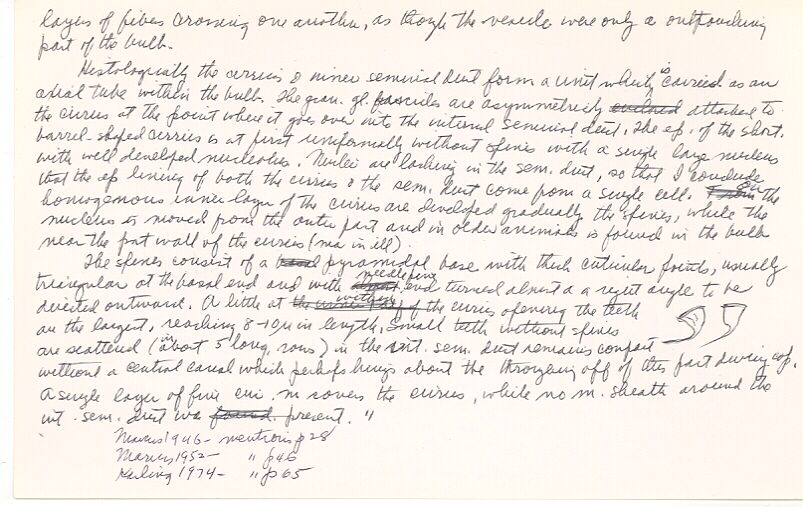 layers of fibers crossing one another, as though the vesicle were only a outpouching
part of the bulb.
Histologically the cirrus & inner seminal duct form a unit which is carried as an
axial tube within the bulb. The gran. gl. fascicles are asymmetrically attached to
the cirrus at the point where it goes over into the internal seminal duct. The ep. of the short
barrel-shaped cirrus is at first uniformally without spines with a single large nucleus
with well developed nucleolus. Nuclei are lacking in the sem. duct, so that I conclude
that the ep lining of both the cirrus & the sem. duct come from a single cell. In the
homogenous inner layer of the cirrus are developed gradually the spines, while the
nucleus is moved from the outer part and in older animals is found in the bulb
near the wall of the cirrus (ma in ill).
The spines consist of a pyramidal base with thick cuticular points, usually
triangular at the basal end and with needlefine end turned almost a a right angle to be
directed outward. A little at within of the cirrus opening the teeth
are the largest, reaching 8-10µ in length, small teeth without spines
are scattered (in about 5 long. rows) in the int. sem. duct remains
without a central canal which perhaps brings about the throwing off of this part during cop.
A single layer of fine cir. m covers the cirrus, while no m. sheath around the
int. sem. duct was present. "
Marcus 1946- mentions p 28
Marcus 1952- " p 46
Karling 1974- " p 65